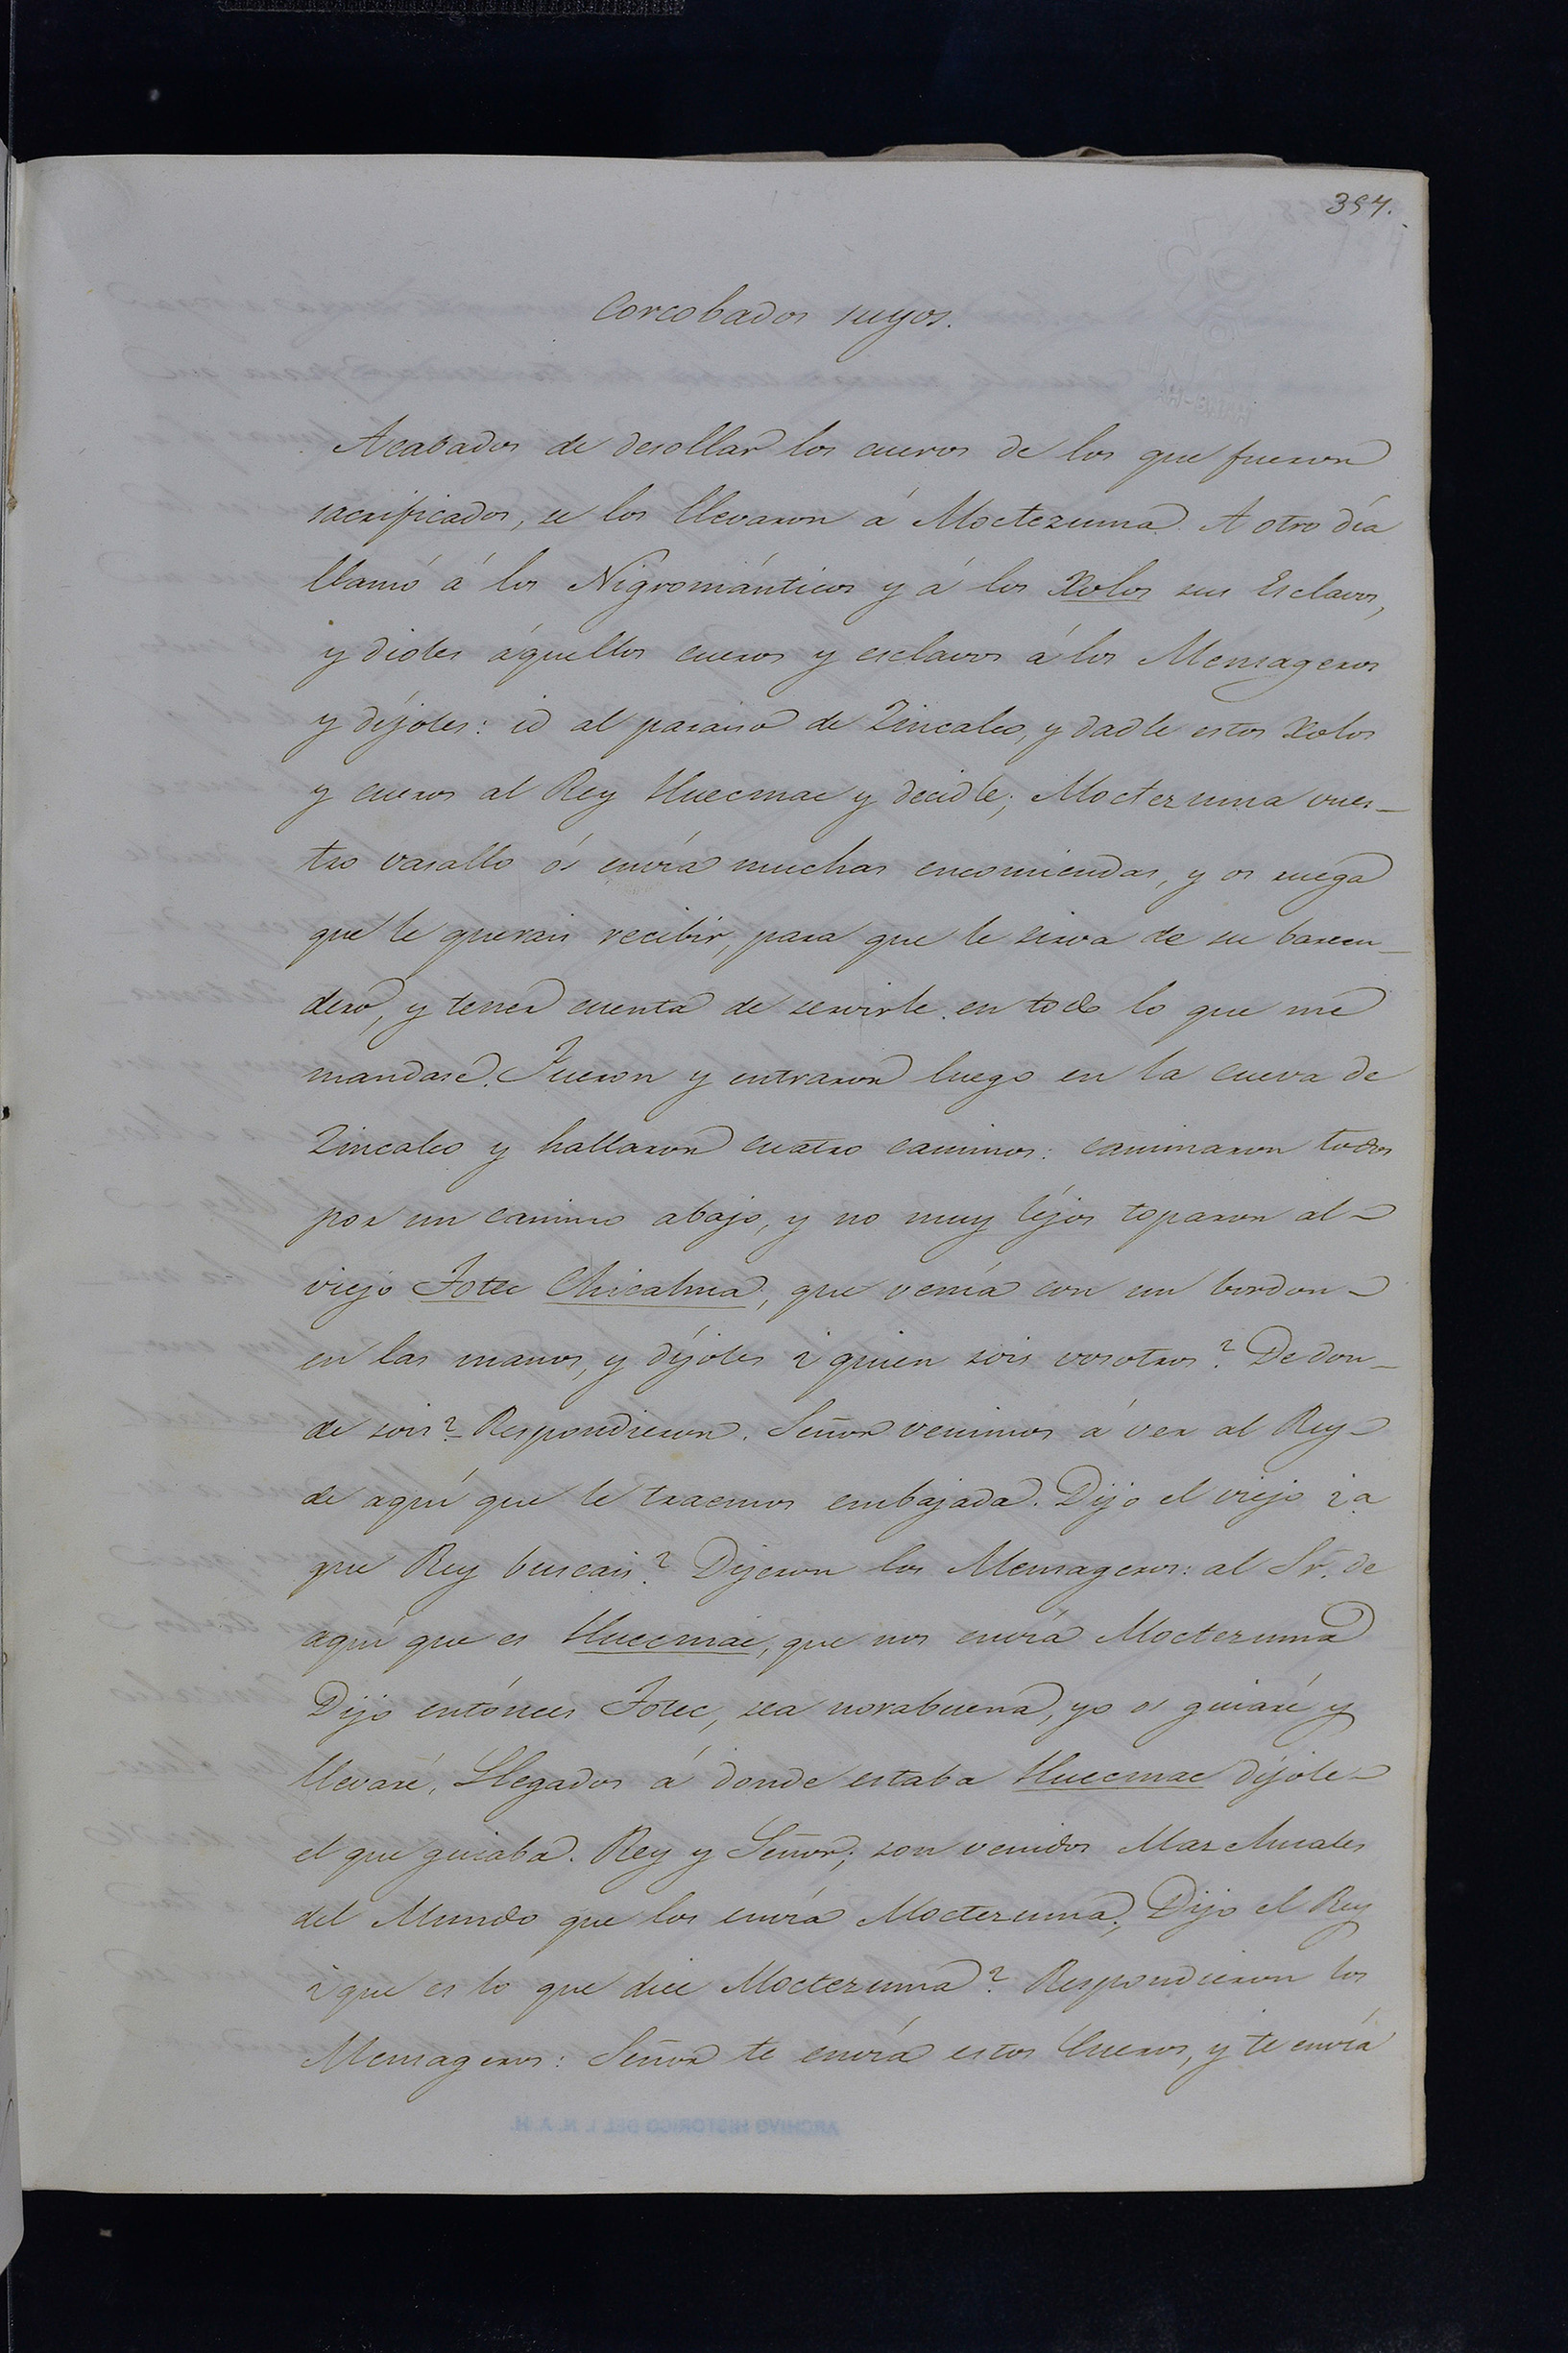 397.
Corcobados suyos.
Acabados de desollar los cueros de los que fueron
sacrificados, se los llevaron á Moctezuma. A otro día
llamó á los Nigrománticos y á los Xolos sus Esclavos,
y dioles áquellos cueros y esclavos á los Mensageros
y díjoles: id al paraiso de Zincalco, y dadle estos Xolos
y cueros al Rey Huecmac y decidle; Moctezuma vues-
tro vasallo ós envía muchas encomiendas, y os ruega
que le querais recibir, para que le sirva de su barren-
dero, y tener cuenta de servirle en todo lo que me
mandase. Fueron y entraron luego en la cueva de
Zincalco y hallaron cuatro caminos: caminaron todos
por un camino abajo, y no muy léjos toparon al-
viejo Totec Chicahua, que venía con un bordon-
en las manos, y díjoles ¿quien sois vosotros? De don-
de sois? Respondieron. Señor venimos á ver al Rey-
de aquí que le traemos embajada. Dijo el viejo ¿a
que Rey buscais? Dijeron los Mensageros: al Sr. de
aquí que es Huecmac, que nos envía Moctezuma
Dijo entónces Totec, sea norabuena, yo os guiaré y
llevaré, Llegados á donde estaba Huecmac díjole-
el que guiaba. Rey y Señor; son venidos Mazehuales
del Mundo que los envía Moctezuma; Dijo el Rey
¿que es lo que dice Moctezuma? Respondieron los
Mensageros: Señor te envía estos Cueros, y te envía
ARCHIVO HISTORICO DEL I. N. A. H.